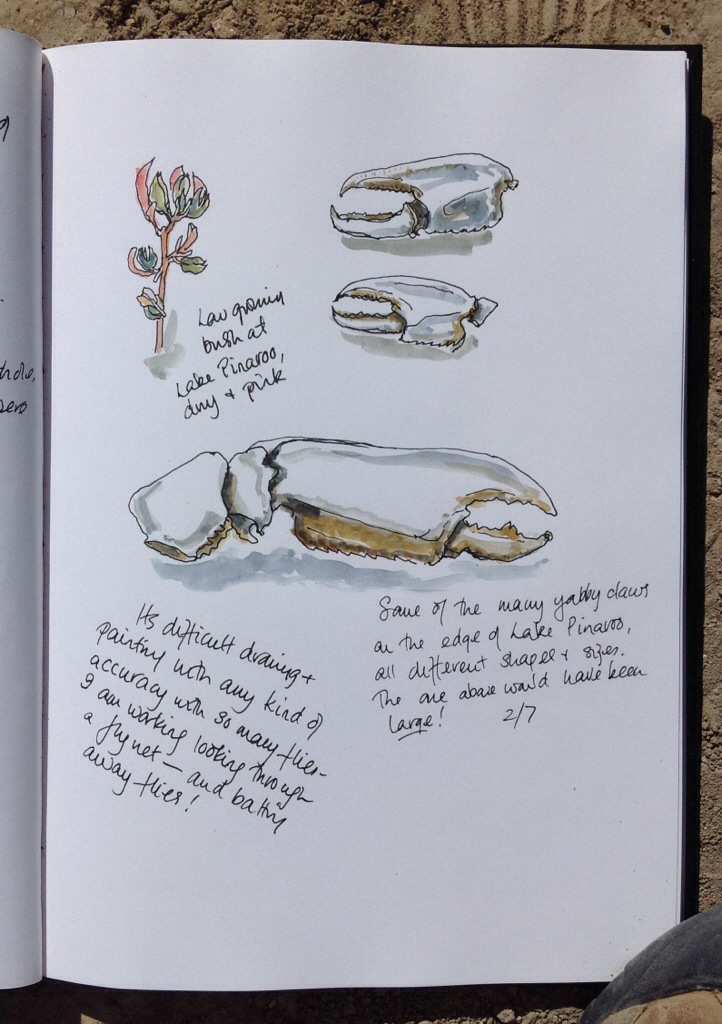 g
thdre,
zero
Low growing
bush at
Lake Pinaroo,
dry + pink
Its difficult drawing +
painting with any kind of
accuracy with so many flies-
I am working looking through
a fly net — and batting
away flies!
Some of the many yabby claws
on the edge of Lake Pinaroo,
all different shapes + sizes.
The one above would have been
Large! 2/7